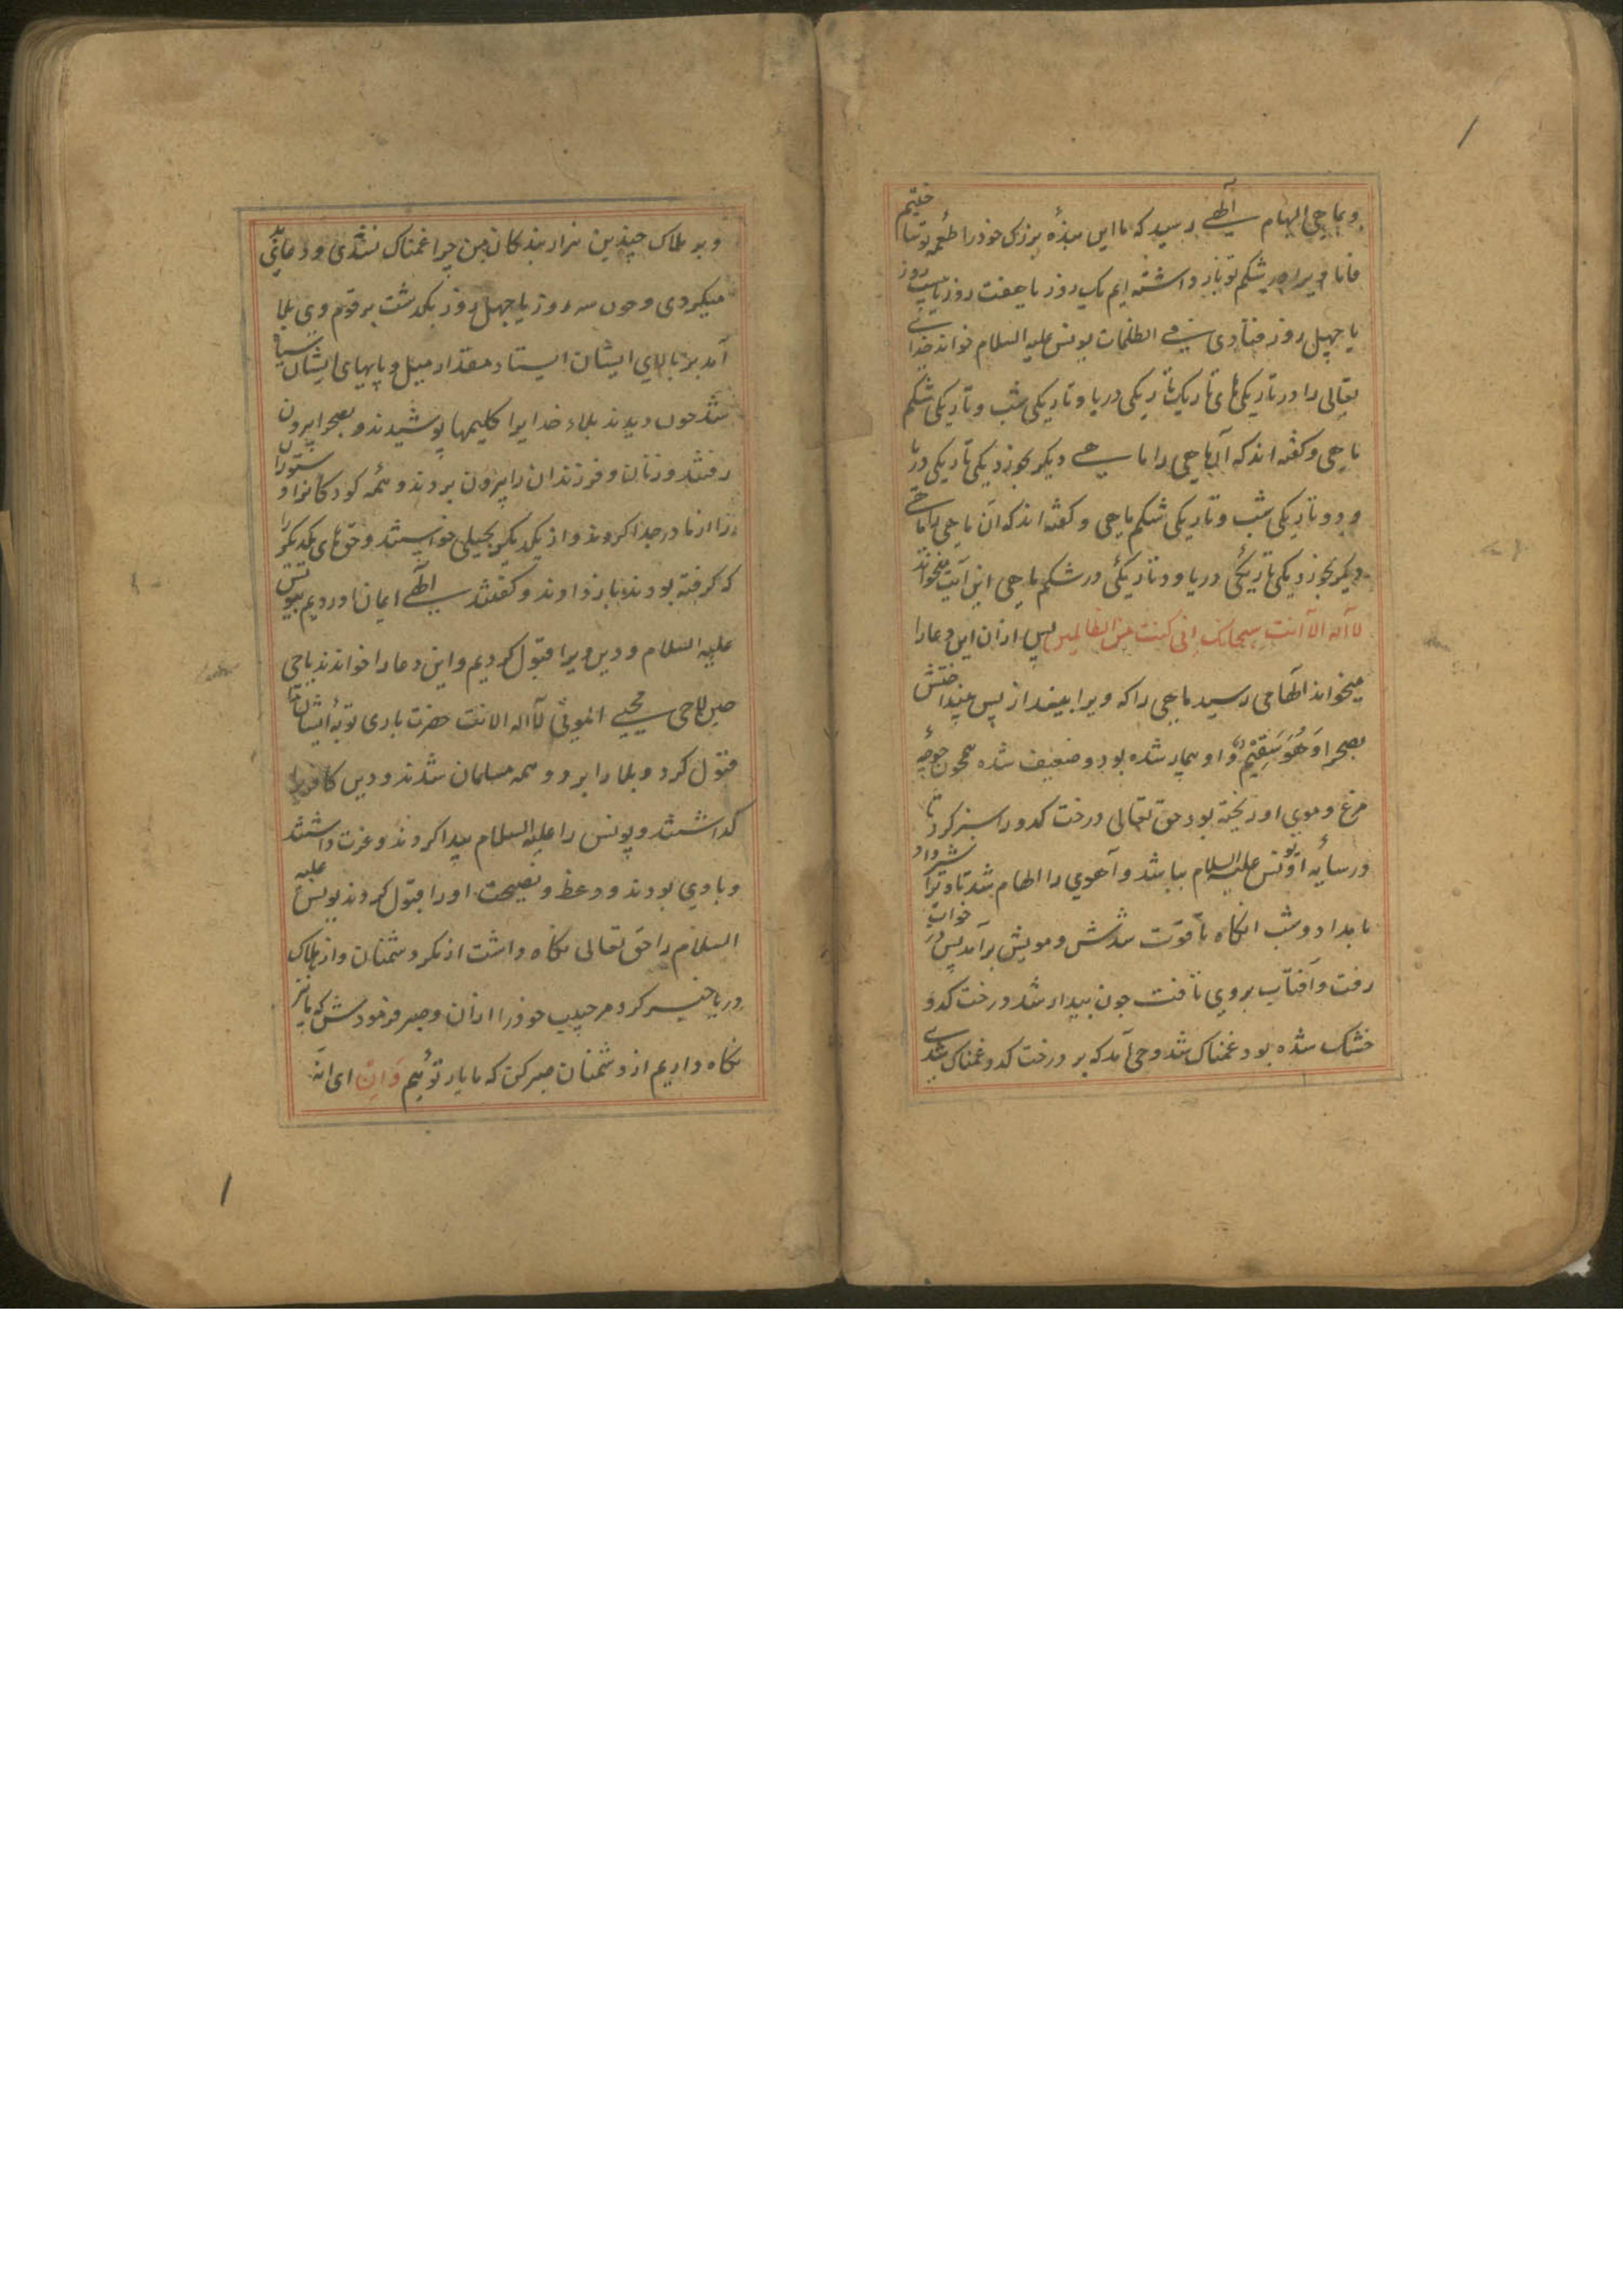 وبماحی الهام آلهی رسید که ما این بنذهٔ بزرک خودرا طعمه تو نساختیم
فاما ویرا در شکم تو بازداشته ایم یک روز یا هفت روز یا بیست روز
یا چهل روز فنادی فی الظلمات یونس علیه السلام خواند خدای
تعالی را در تاریکی های تاریک تاریکی دریا و تاریکی شب و تاریکی شکم
ماحی و کفته اند که آن ماحی را ماهی دیکر بخورد یکی تاریکی دریا
و دو تاریکی شب و تاریکی شکم ماحی و کفته اند که آن ماحی را ماهی
دیکر بخورد یکی تاریکئ دریا و دو تاریکئ در شکم ماحی این آیت میخواند
لا آله الا آنت سبحانک انی کنت من الظالمین پس ازان این دعا را
میخواند آلهامی رسید ماحی را که ویرا بیفنداز پس بینداختش
بصحرا وَهُوَ سَقِیْمٌ و او بیمار شده بود و ضعیف شده همچون جوجهٔ
مرغ و موی او ریخته بود حق تعالی درخت کدو را سبز کرد تا
در سایهٔ او یونس علیه السلام بباشد و آهوی را الهام شد تا ویرا شیر داد
بامداد و شب آنکاه تا قوت شدش و مویش برآمد پس در خواب
رفت و آفتاب بروی تافت چون بیدار شد درخت کدو
خشک شده بود غمناک شد وحی آمد که بر درخت کدو غمناک شدی
و بر هلاک چندین هزار بندکان من چرا غمناک نشدی و دعای بد
میکردی و چون سه روز یا چهل روز بکذشت بر قوم وی بلا
آمد بر بالای ایشان ایستاد مقدار میل و پایهای ایشان سیاه
شد چون دیدند بلاء خدایرا کلیمها پوشیدند و بصحرا بیرون
رفتند و زنان و فرزندان را بیرون بردند و همه کودکانرا و ستورانرا
از مادر جدا کردند و از یکدیکر بحیلی خواستند و حق های یکدیکر را
که کرفته بودند باز دادند و کفتند آلهی ایمان اوردیم بیونس
علیه السلام و دین ویرا قبول کردیم و این دعا را خواندند یا حی
حین لاحی محیی الموتی لآ اله الا انت حضرت باری توبهٔ ایشان را
قبول کرد و بلا را ببرد و همه مسلمان شدند و دین کافری را
کذاشتند و یونس را علیه السلام پیدا کردند و عزت داشتند
و با وی بودند و وعظ و نصیحت او را قبول کردند یونس علیه
السلام را حق تعالی نکاه داشت از مکر دشمنان و از هلاک
دریا خبر کرد مر حبیب خودرا ازان و صبر فرمودش که ما نیز
نکاه داریم از دشمنان صبر کن که ما یار توئیم وَاِنْ ای انه